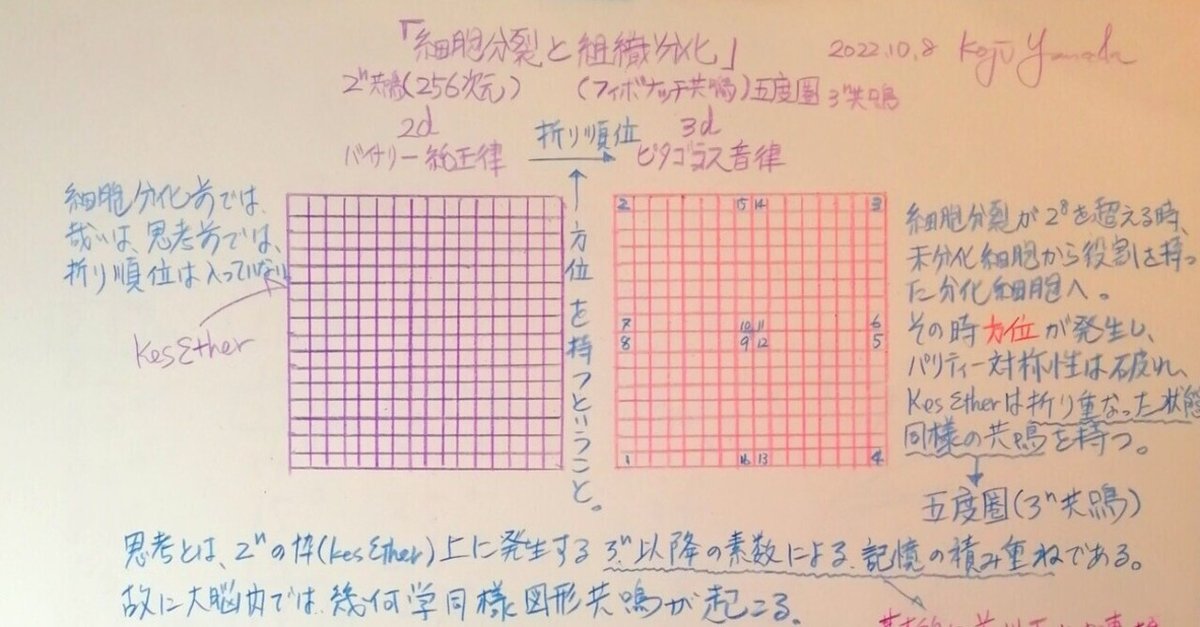 「細胞分裂と組織分化」
2022.10.8 Koji Yamada
2ⁿ共鳴(256次元)
(フィボナッチ共鳴)五度圏 3ⁿ共鳴
2d
折り順位
3d
バイナリー純正律
ピタゴラス音律
細胞分化前では、
或いは、思考前では、
折り順位は入っていない
KesƐther
方位を持つということ。
2 15 14 3
7 10 11 6
8 9 12 5
1 16 13 4
細胞分裂が2⁸を超える時、
未分化細胞から役割を持っ
た分化細胞へ。
その時方位が発生し、
パリティー対称性は破れ、
KesƐtherは折り重なった状態
同様の共鳴を持つ。
五度圏(3ⁿ共鳴)
思考とは、2ⁿの枠(KesƐther)上に発生する3ⁿ以降の素数による記憶の積み重ねである。
故に大脳内では、幾何学同様図形共鳴が起こる。